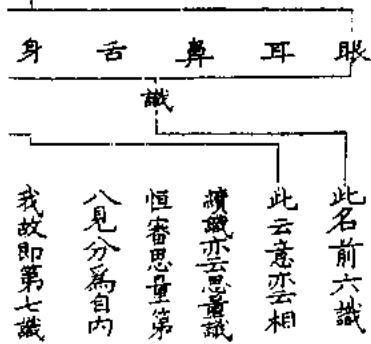 眼
耳
鼻
舌
身
識
此名前六識
此云意亦云相
續識亦云思量識
恒審思量第
八見分為自内
我故即第七識